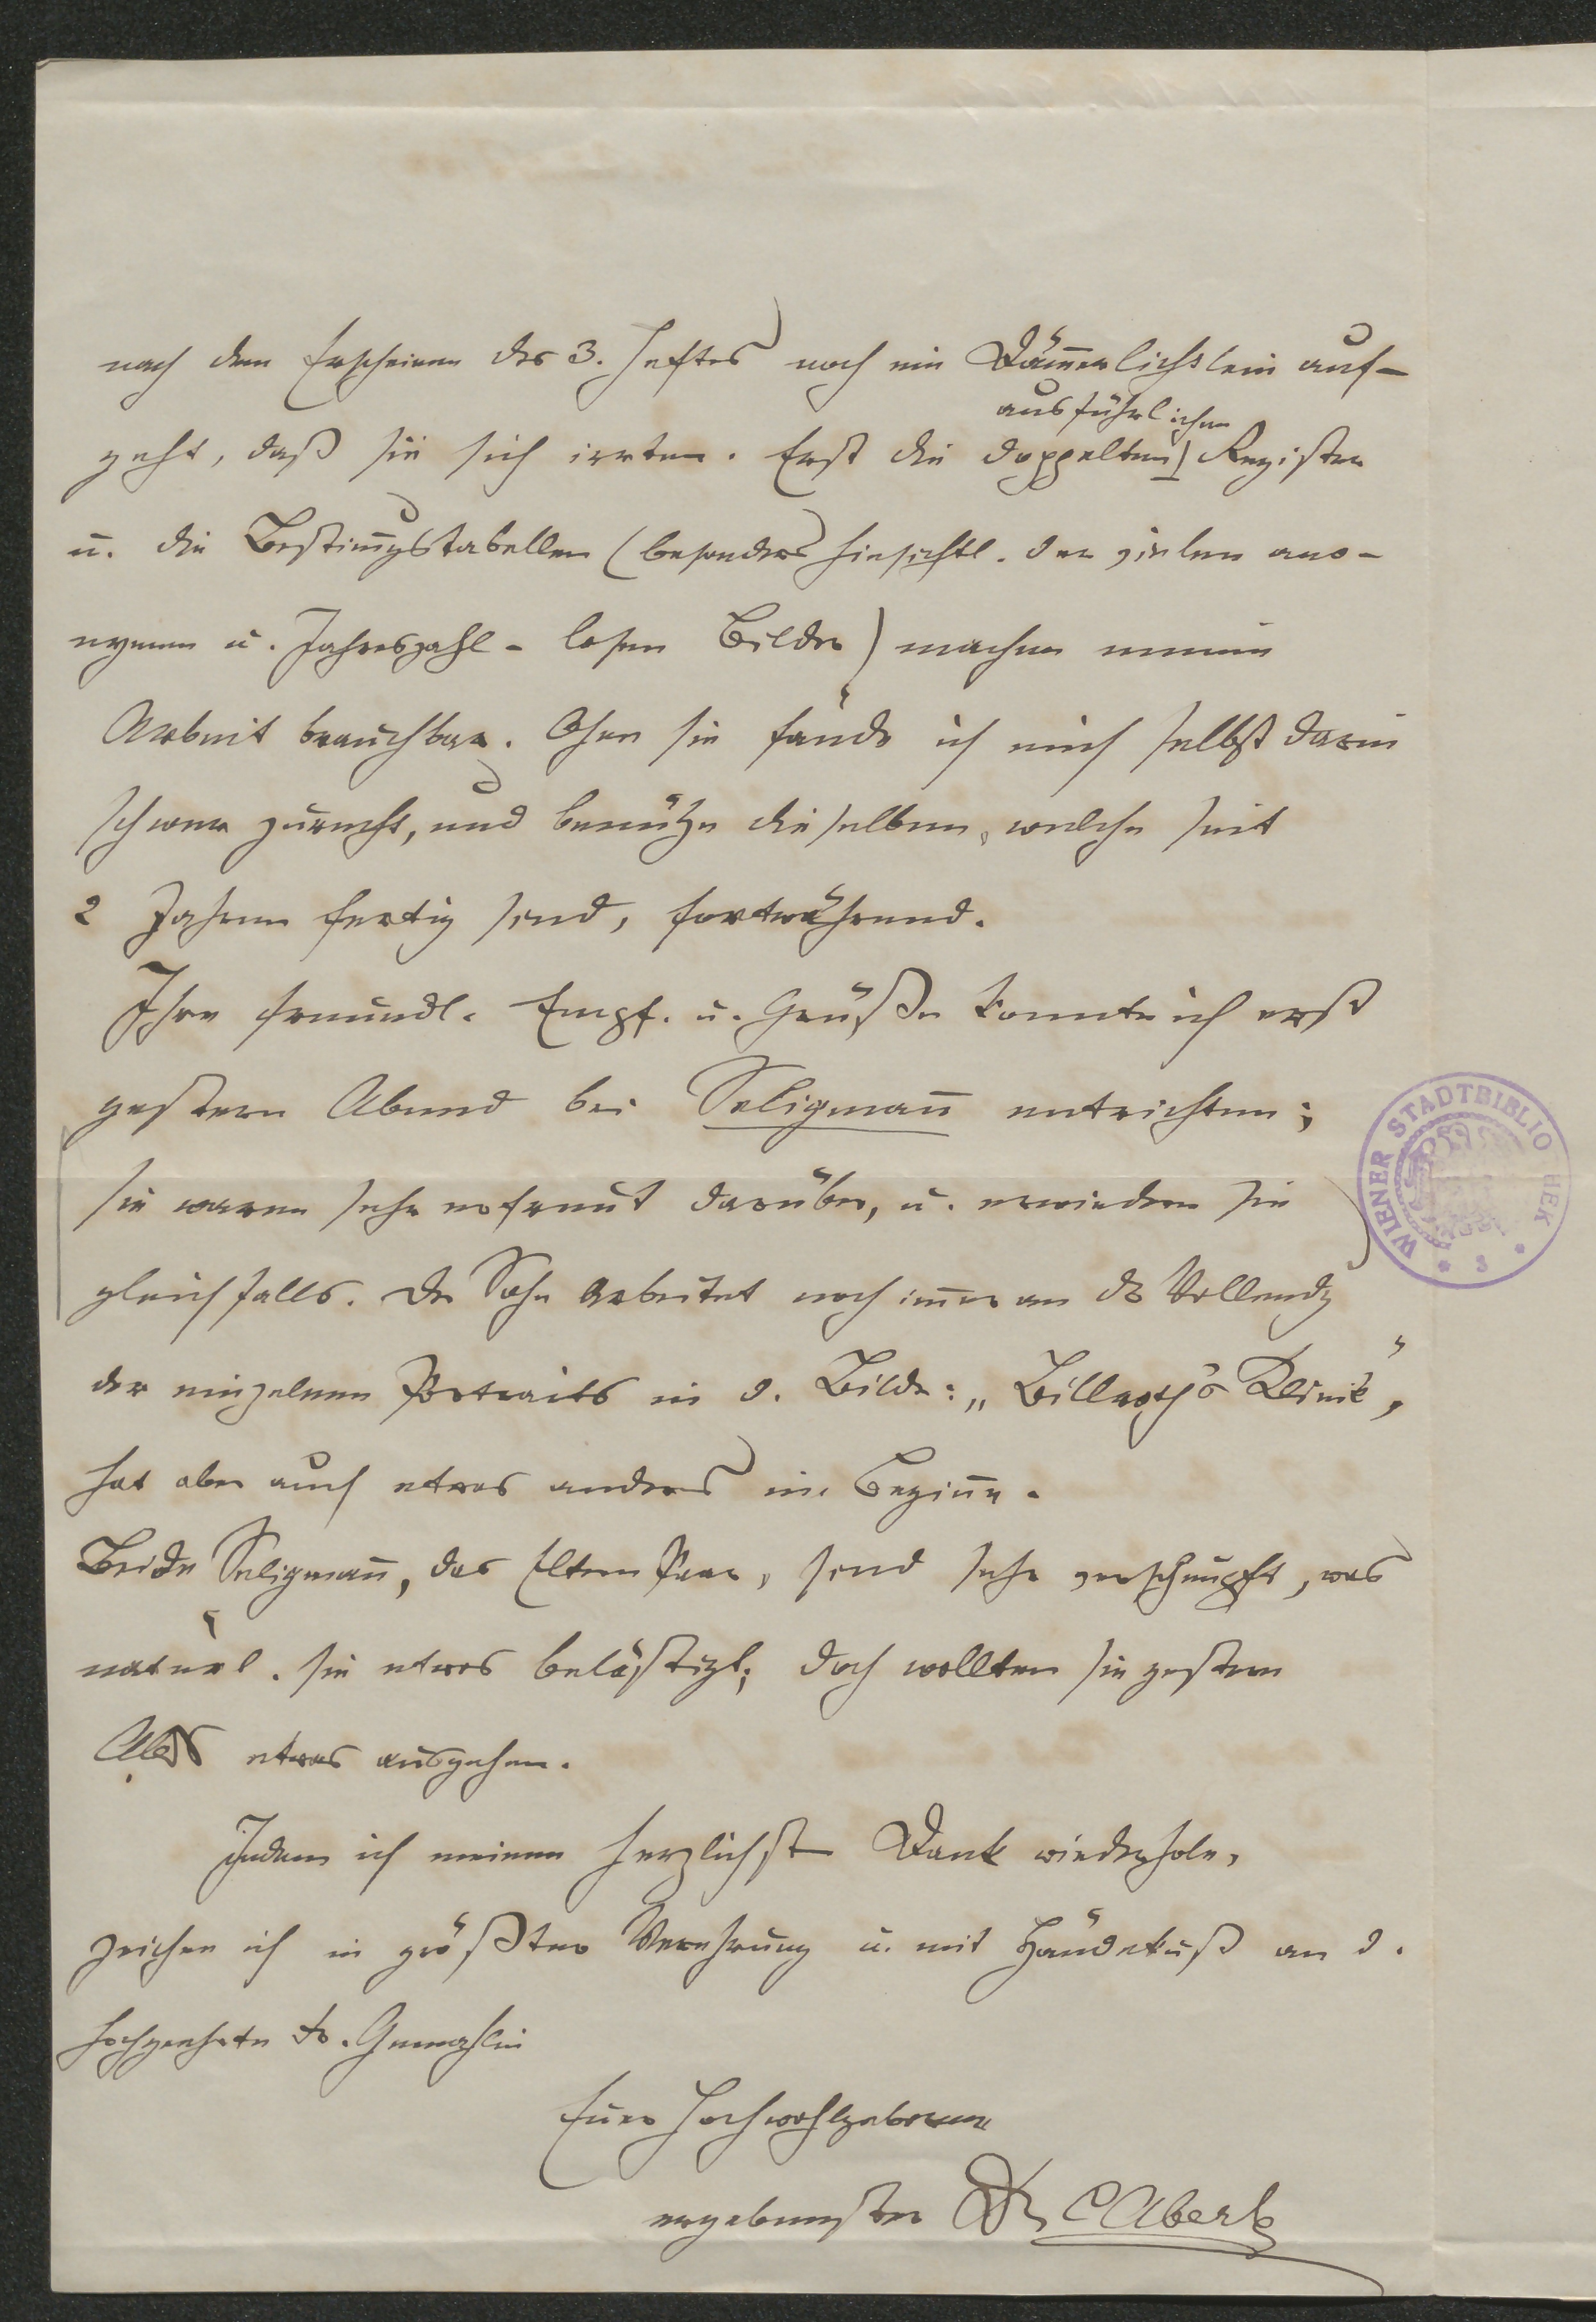 nach dem Erscheinen des 3. Heftes noch ein Däm̅erlichtlein auf-
ausführlichen
geht, daß sie sich irrten. Erst die doppelten Register
u. die Bestim̅gstabellen (besonders hinsichtl. der vielen ano-
nymen u. Jahreszahl-losen Bilder) machen meine
Arbeit brauchbar. Ohne sie fände ich mich selbst darin
schwer zurecht, und benütze dieselben, welche seit
2 Jahren fertig sind, fortwährend.
Ihre freundl. Empf. u. Grüße konnte ich erst
gestern Abend bei Seligman̅ entrichten;
sie waren sehr erfreut darüber, u. erwiedern sie
gleichfalls. Der Sohn arbeitet noch im̅er an der Vollendg
der einzelnen Portraits in d. Bilde: „Billroth's Klinik",
hat aber auch etwas anderes im Begin̅e.
Beide Seligman̅, das Elternpaar, sind sehr verschnupft, was
natürl. sie etwas belästigt; doch wollten sie gestern
Abds etwas ausgehen.
Indem ich meinen herzlichsten Dank wiederhole,
zeichne ich in größter Verehrung u. mit Händekuß an d.
hochgeehrte Fr. Gemahlin
Euer Hochwohlgeboren
ergebenster Dr. C Aberle
WIENER STADTBIBLIOTHEK
* 3 *